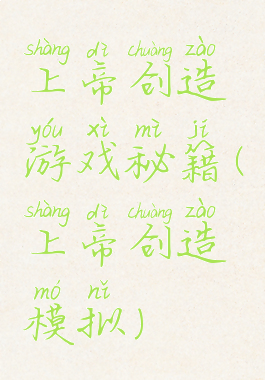 shàng dì chuàng zào
上帝创造
yóu xì mì jí
游戏秘籍(
shàng dì chuàng zào
上帝创造
mó nǐ
模拟)